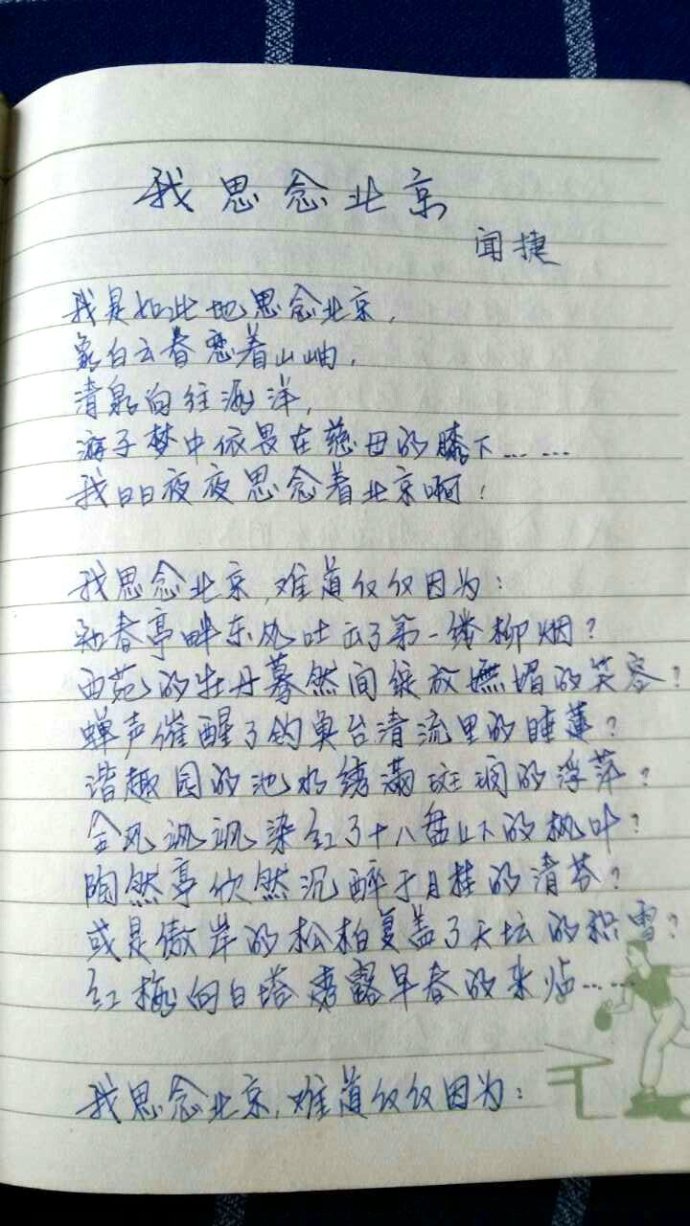 我思念北京
闻捷
我是如此地思念北京，
象白云眷恋着山岫，
清泉向往海洋，
游子梦中依畏在慈母的膝下……
我日日夜夜思念着北京啊！
我思念北京，难道仅仅因为：
知春亭畔东风吐出了第一缕柳烟？
西苑的牡丹蓦然间绽放妩媚的笑容？
蝉声催醒了钓鱼台清流里的睡莲？
谐趣园的池水绣满斑斓的浮萍？
金风飒飒染红了十八盘上下的枫叶？
陶然亭欣然沉醉于月桂的清芬？
或是傲岸的松柏复盖了天坛的积雪？
红梅向白塔透露早春的来临……
我思念北京，难道仅仅因为：